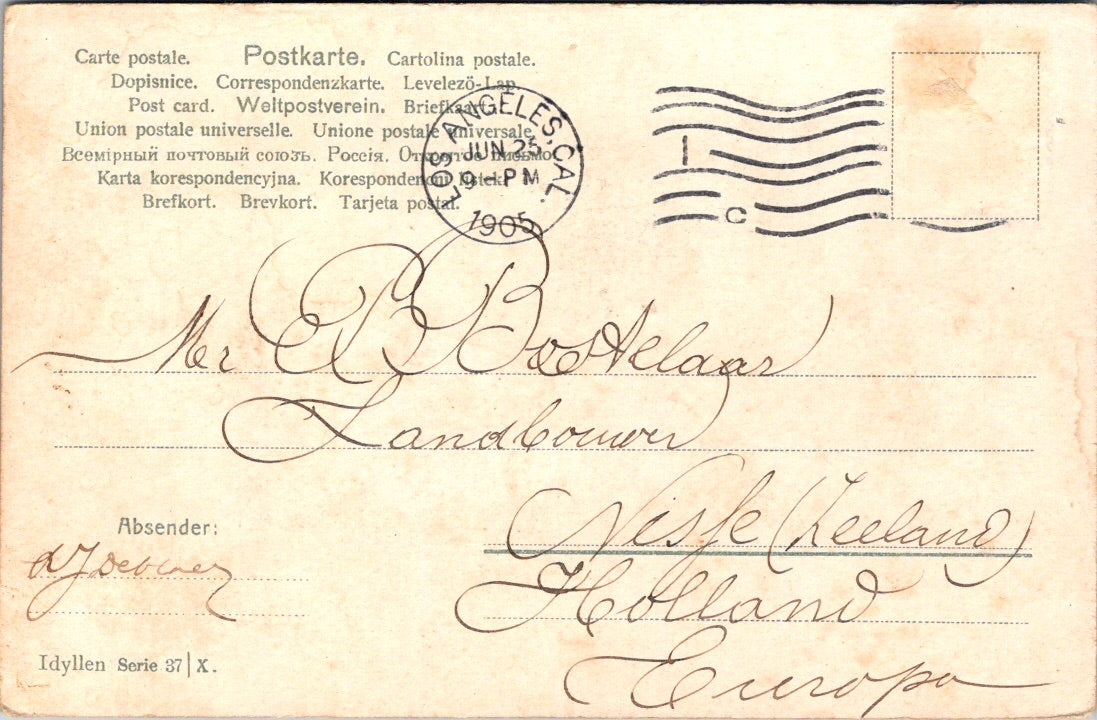 Carte postale. Postkarte. Cartolina postale.
Dopisnice. Correspondenzkarte. Levelező-Lap
Post card. Weltpostverein. Briefkaart.
Union postale universelle. Unione postale universale
Всемірный почтовый союзъ. Россія. Открытое письмо
Karta korespondencyjna. Korespondenční lístek.
Brefkort. Brevkort. Tarjeta postal.
LOS ANGELES, CAL.
JUN 25
9-PM
1905
I
C
Mr P Bostelaar
Landbouwer
Nisse (Zeeland)
Holland
Europa
Absender:
Idyllen Serie 37|X.